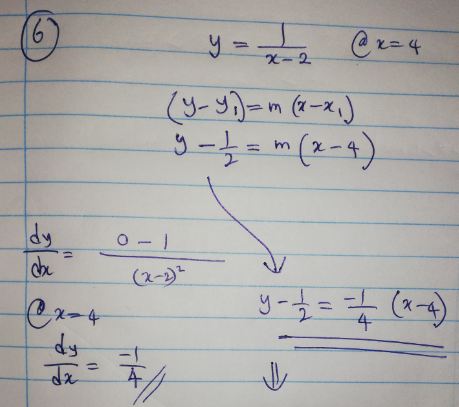 6
y = 1/(x-2) @ x=4
(y-y₁)=m (x-x₁)
y - 1/2 = m (x-4)
dy/dx = (0-1)/(x-2)²
@ x=4
dy/dx = -1/4 //
y - 1/2 = -1/4 (x-4)